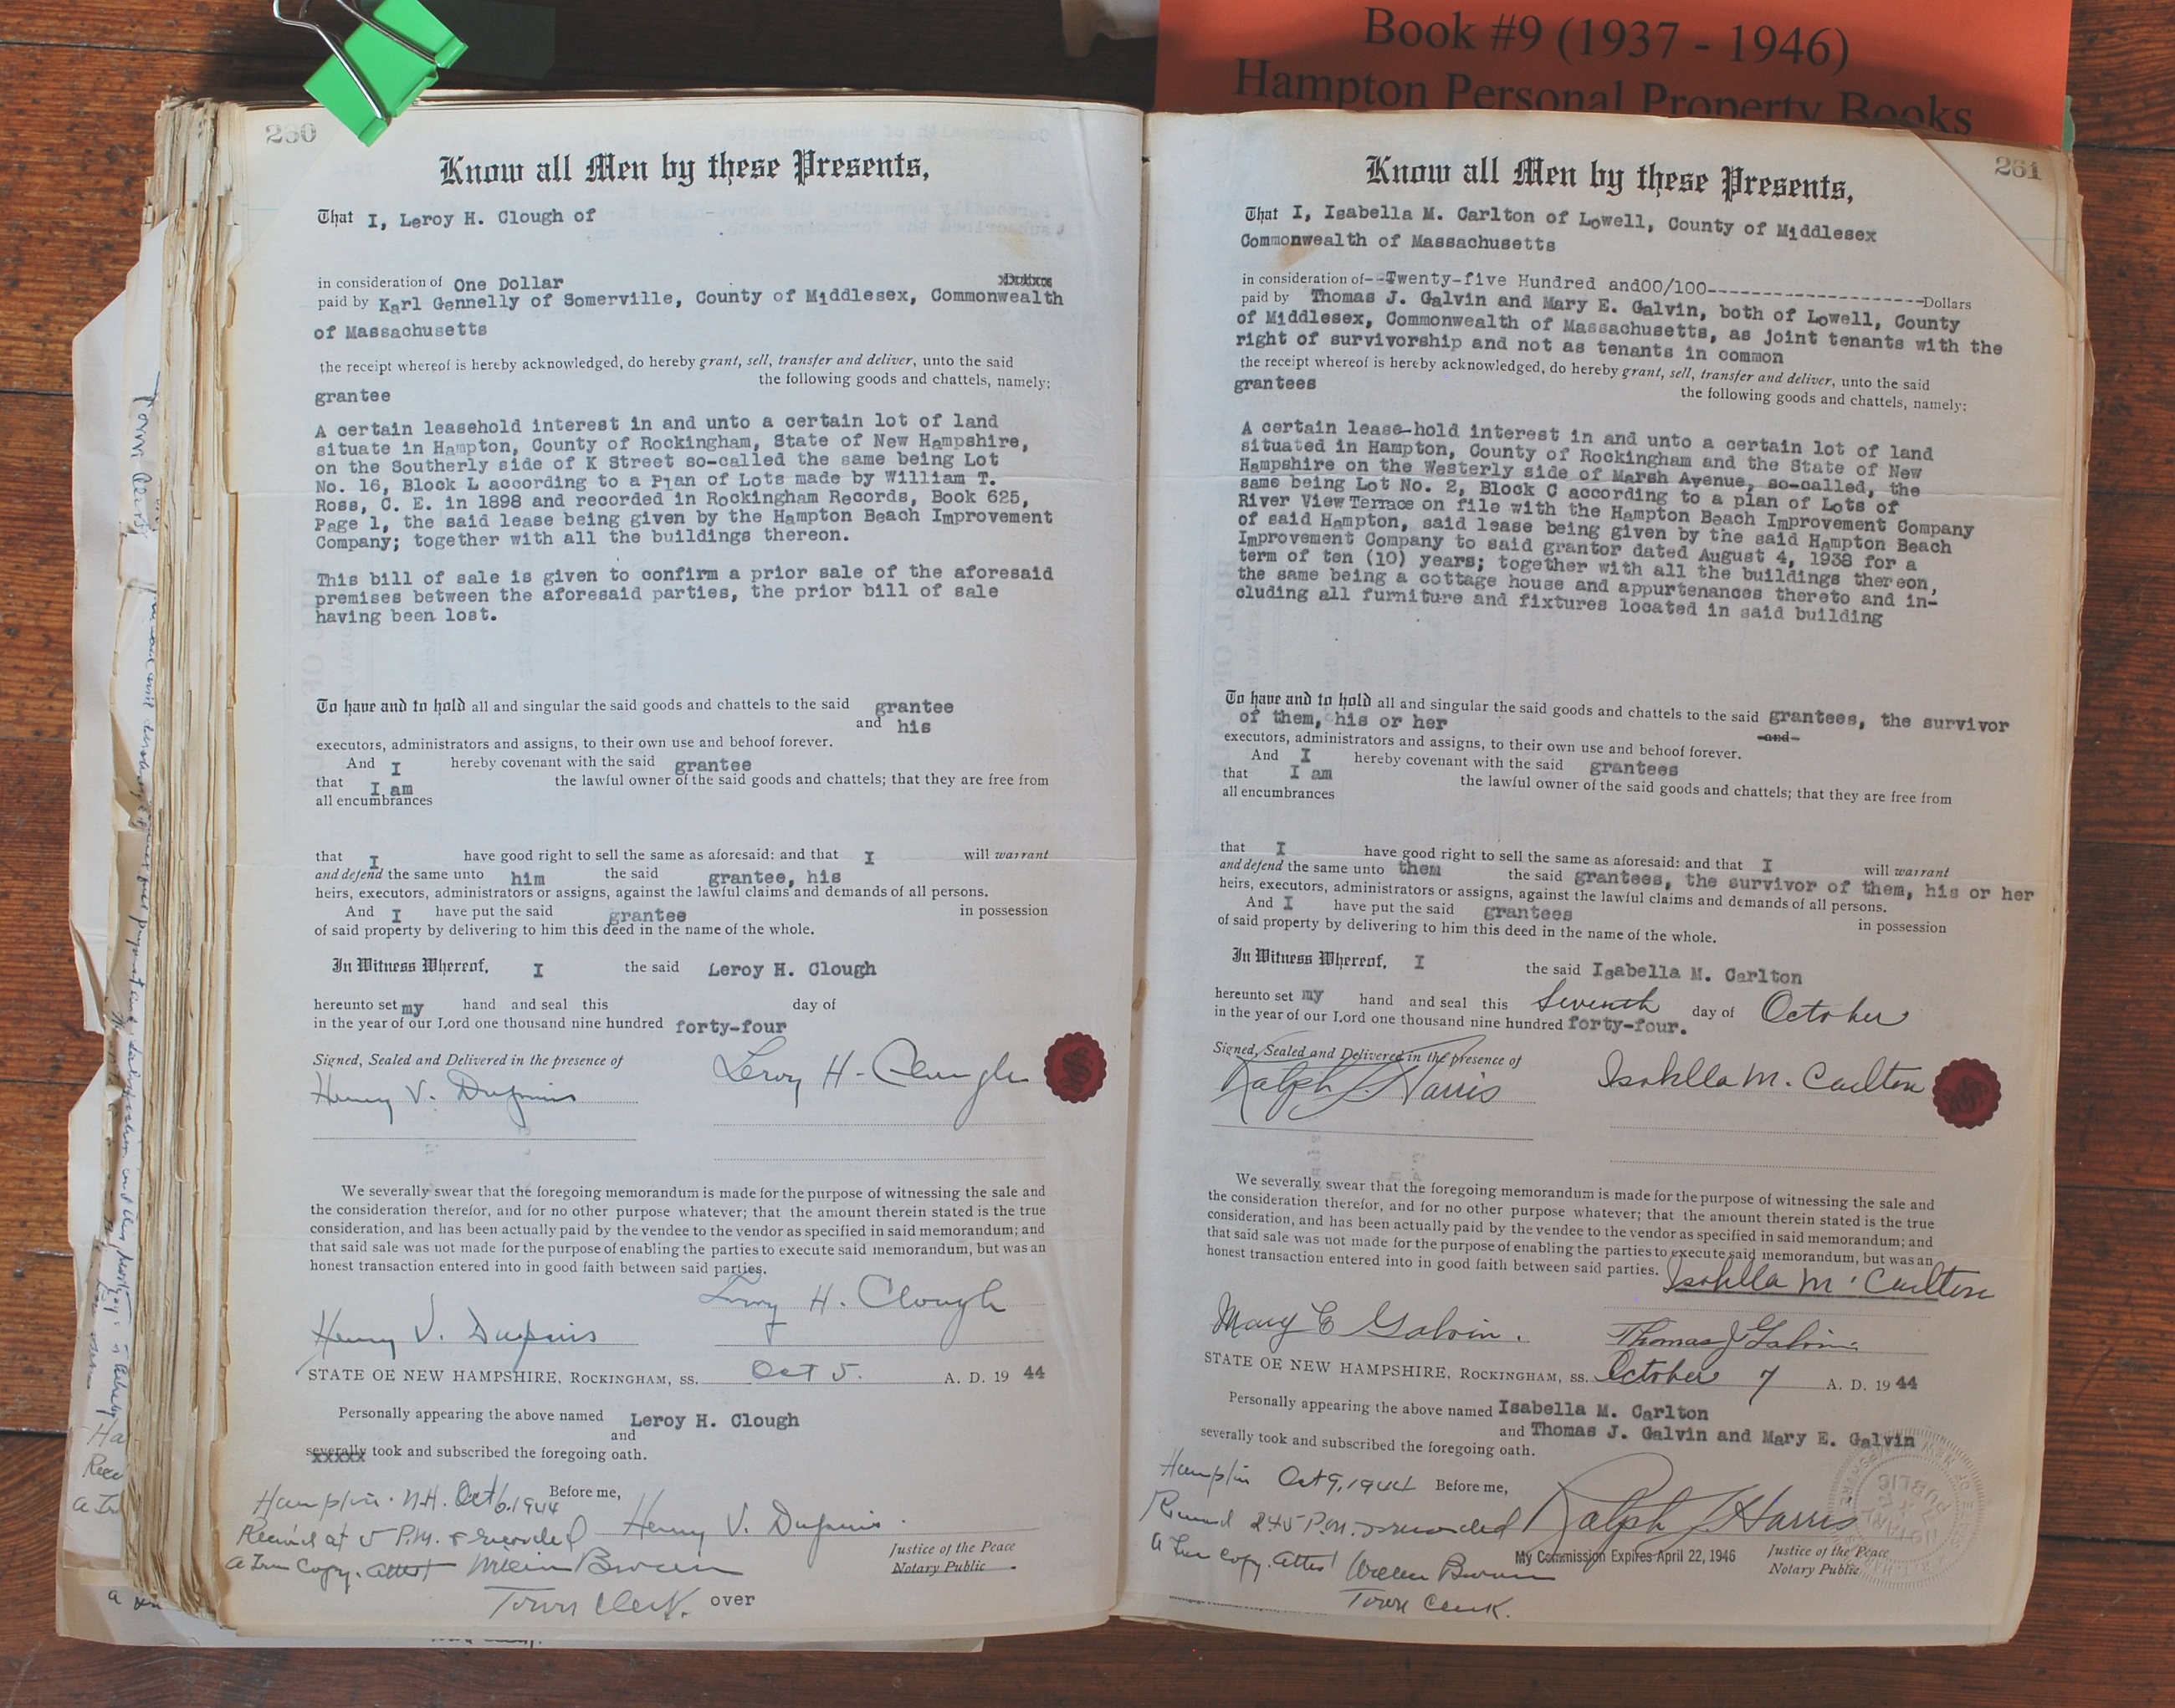 Book #9 (1937 - 1946)
Hampton Personal Property Books
230
Know all Men by these Presents,
That I, Leroy H. Clough of
in consideration of One Dollar
paid by Karl Gennelly of Somerville, County of Middlesex, Commonwealth
of Massachusetts
the receipt whereof is hereby acknowledged, do hereby grant, sell, transfer and deliver, unto the said
the following goods and chattels, namely:
grantee
A certain leasehold interest in and unto a certain lot of land
situate in Hampton, County of Rockingham, State of New Hampshire,
on the Southerly side of K Street so-called the same being Lot
No. 16, Block L according to a Plan of Lots made by William T.
Ross, C. E. in 1898 and recorded in Rockingham Records, Book 625,
Page 1, the said lease being given by the Hampton Beach Improvement
Company; together with all the buildings thereon.
This bill of sale is given to confirm a prior sale of the aforesaid
premises between the aforesaid parties, the prior bill of sale
having been lost.
To have and to hold all and singular the said goods and chattels to the said grantee
and his
executors, administrators and assigns, to their own use and behoof forever.
And I hereby covenant with the said grantee
that I am the lawful owner of the said goods and chattels; that they are free from
all encumbrances
that I have good right to sell the same as aforesaid: and that I will warrant
and defend the same unto him the said grantee, his
heirs, executors, administrators or assigns, against the lawful claims and demands of all persons.
And I have put the said grantee in possession
of said property by delivering to him this deed in the name of the whole.
In Witness Whereof, I the said Leroy H. Clough
hereunto set my hand and seal this day of
in the year of our Lord one thousand nine hundred forty-four
Signed, Sealed and Delivered in the presence of
Leroy H. Clough
Henry V. Dupuis
We severally swear that the foregoing memorandum is made for the purpose of witnessing the sale and
the consideration therefor, and for no other purpose whatever; that the amount therein stated is the true
consideration, and has been actually paid by the vendee to the vendor as specified in said memorandum; and
that said sale was not made for the purpose of enabling the parties to execute said memorandum, but was an
honest transaction entered into in good faith between said parties.
Leroy H. Clough
Henry V. Dupuis
STATE OF NEW HAMPSHIRE, ROCKINGHAM, SS. Oct 5. A. D. 19 44
Personally appearing the above named Leroy H. Clough
and
severally took and subscribed the foregoing oath.
Hampton. N.H. Oct 6. 1944 Before me,
Received at 5 P.M. & recorded Henry V. Dupuis.
Justice of the Peace
A True Copy. Attest William Brown Notary Public
Town Clerk. over
261
Know all Men by these Presents,
That I, Isabella M. Carlton of Lowell, County of Middlesex
Commonwealth of Massachusetts
in consideration of--Twenty-five Hundred and00/100--------------------Dollars
paid by Thomas J. Galvin and Mary E. Galvin, both of Lowell, County
of Middlesex, Commonwealth of Massachusetts, as joint tenants with the
right of survivorship and not as tenants in common
the receipt whereof is hereby acknowledged, do hereby grant, sell, transfer and deliver, unto the said
grantees the following goods and chattels, namely:
A certain lease-hold interest in and unto a certain lot of land
situated in Hampton, County of Rockingham and the State of New
Hampshire on the Westerly side of Marsh Avenue, so-called, the
same being Lot No. 2, Block C according to a plan of Lots of
River View Terrace on file with the Hampton Beach Improvement Company
of said Hampton, said lease being given by the said Hampton Beach
Improvement Company to said grantor dated August 4, 1938 for a
term of ten (10) years; together with all the buildings thereon,
the same being a cottage house and appurtenances thereto and in-
cluding all furniture and fixtures located in said building
To have and to hold all and singular the said goods and chattels to the said grantees, the survivor
of them, his or her and
executors, administrators and assigns, to their own use and behoof forever.
And I hereby covenant with the said grantees
that I am the lawful owner of the said goods and chattels; that they are free from
all encumbrances
that I have good right to sell the same as aforesaid: and that I will warrant
and defend the same unto them the said grantees, the survivor of them, his or her
heirs, executors, administrators or assigns, against the lawful claims and demands of all persons.
And I have put the said grantees in possession
of said property by delivering to him this deed in the name of the whole.
In Witness Whereof, I the said Isabella M. Carlton
hereunto set my hand and seal this Seventh day of October
in the year of our Lord one thousand nine hundred forty-four.
Signed, Sealed and Delivered in the presence of
Ralph J. Harris Isabella M. Carlton
We severally swear that the foregoing memorandum is made for the purpose of witnessing the sale and
the consideration therefor, and for no other purpose whatever; that the amount therein stated is the true
consideration, and has been actually paid by the vendee to the vendor as specified in said memorandum; and
that said sale was not made for the purpose of enabling the parties to execute said memorandum, but was an
honest transaction entered into in good faith between said parties. Isabella M. Carlton
Mary E Galvin. Thomas J Galvin
STATE OF NEW HAMPSHIRE, ROCKINGHAM, SS. October 7 A. D. 19 44
Personally appearing the above named Isabella M. Carlton
and Thomas J. Galvin and Mary E. Galvin
severally took and subscribed the foregoing oath.
Hampton Oct 9, 1944 Before me,
Received 2.45 P.M. & recorded Ralph J Harris
My Commission Expires April 22, 1946 Justice of the Peace
A True Copy. Attest William Brown Notary Public
Town Clerk.